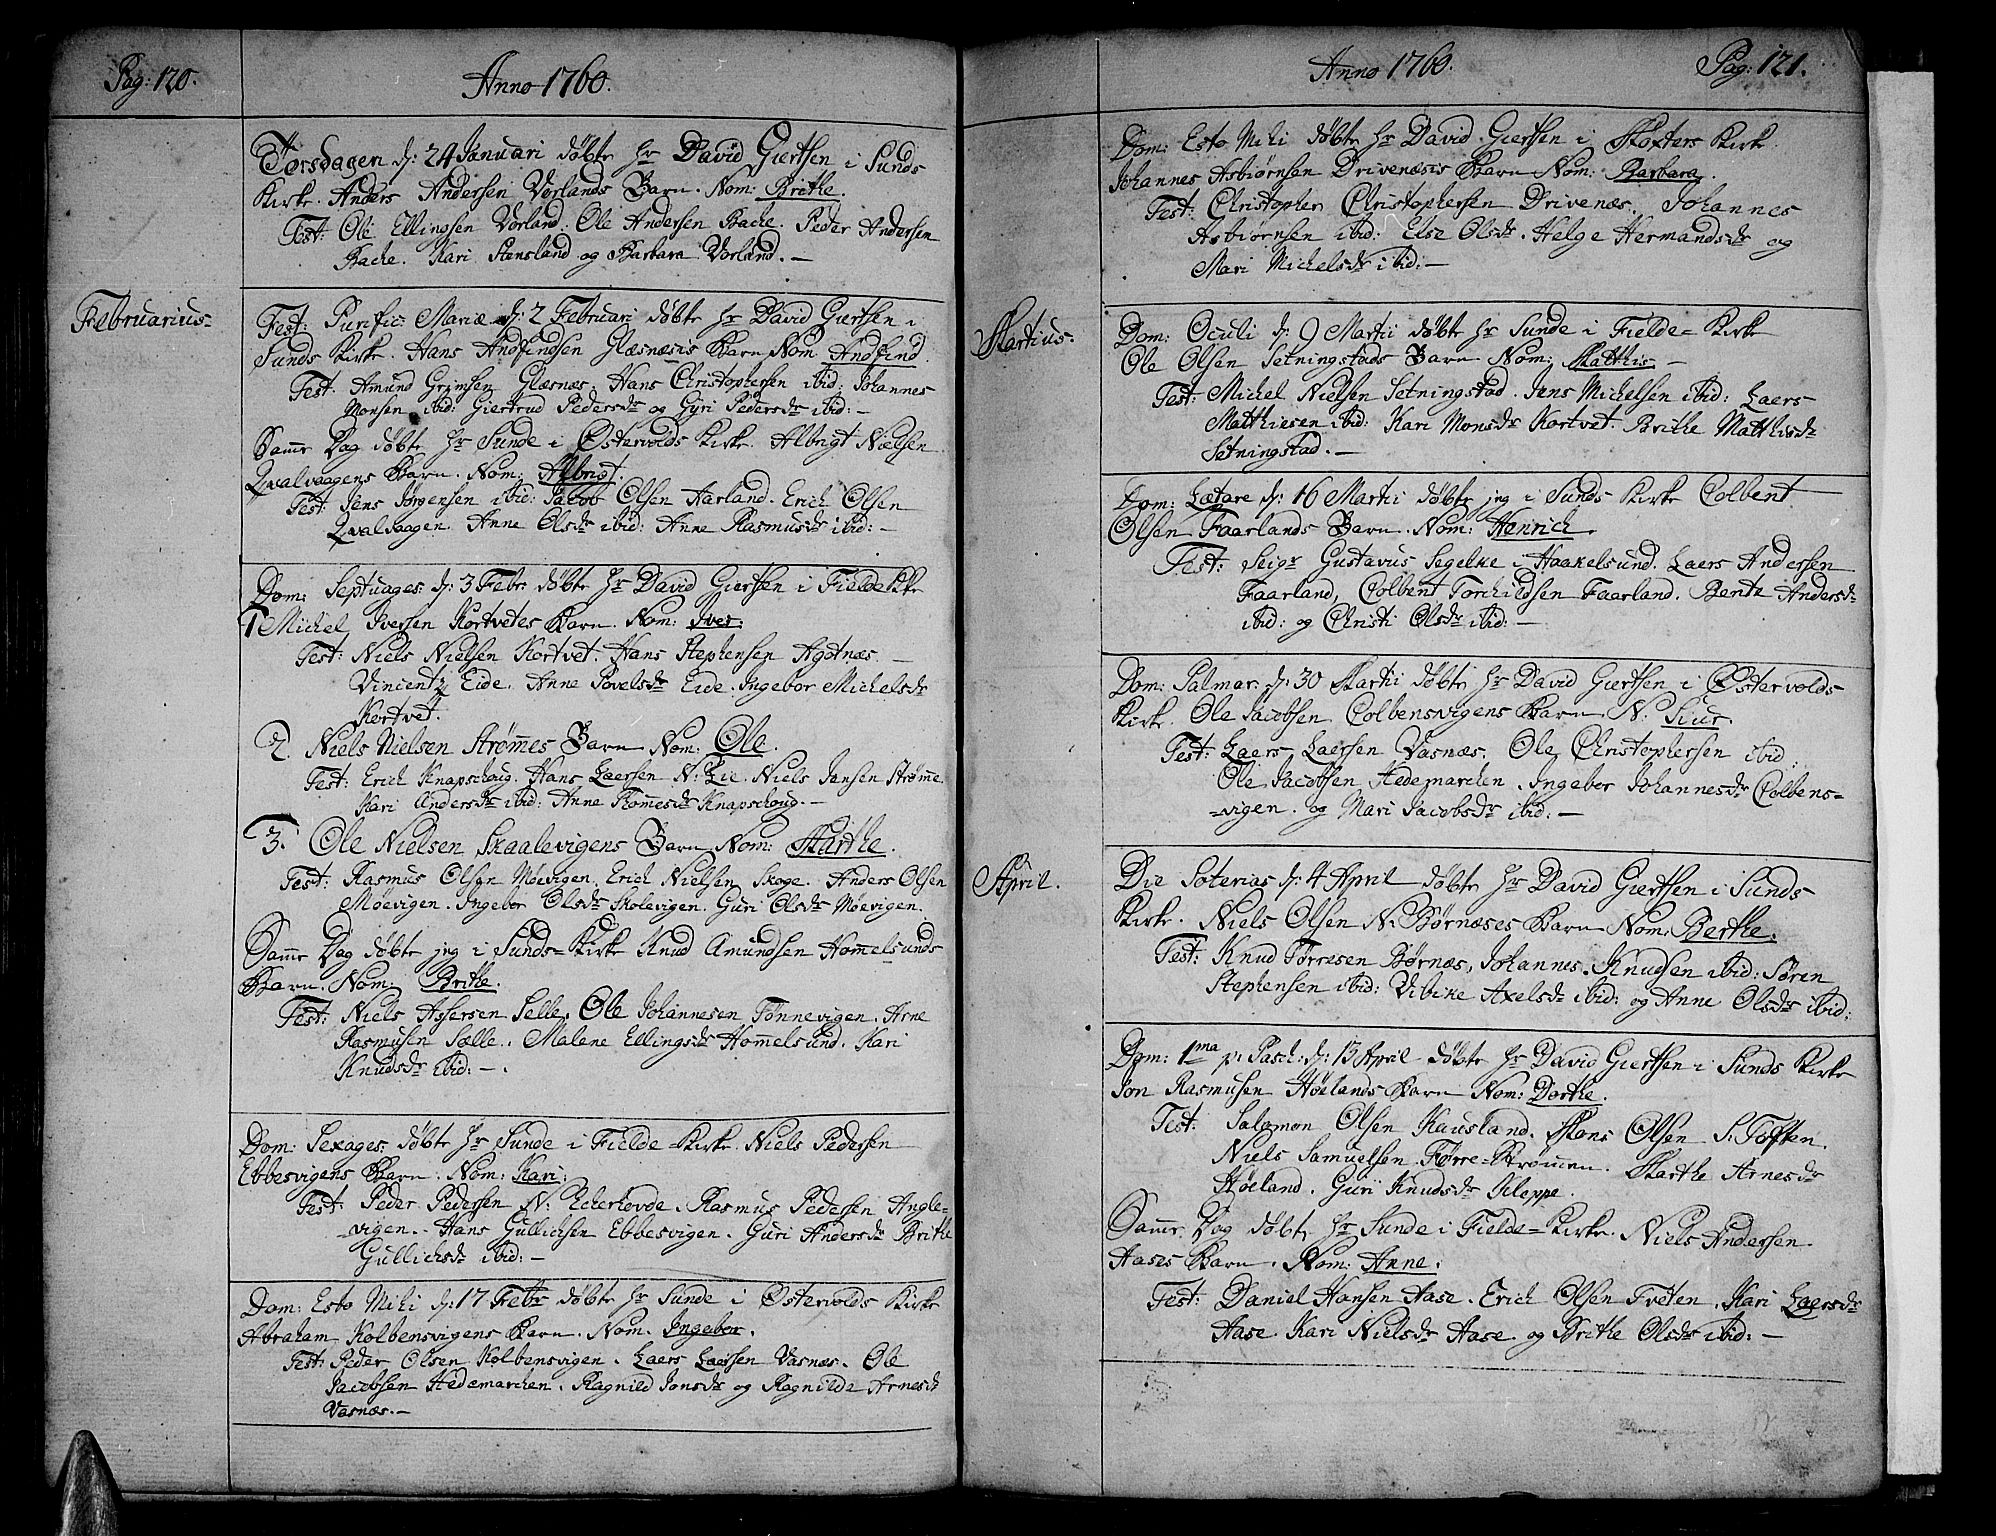 Pag: 120.
Anno 1760.
Torsdagen d: 24 Januari døbte hr David Giertsen i Sunds
Kirke. Anders Andersen Vorlands Barn. Nom: Brithe.
Test: Ole Ellingsen Vorland. Ole Andersen Bache. Peder Andersen
Bache. Kari Stensland og Barbara Vorland. —
Februarius-
Fest: Purific: Mariæ d: 2 Februari døbte hr David Giertsen i
Sunds Kirke. Hans Andfindsen Glæsnæsis Barn Nom Andfind.
Test: Amund Grimsen Glæsnæs. Hans Christophersen ibid: Johannes
Monsen ibid: Giertrud Pedersdr og Gyri Pedersdr ibid: —
Samme Dag døbte hr Sunde i Østervolds Kirke. Albrigt Nielsen
Qvalvaagens Barn. Nom: Albrigt.
Test: Jens Jørgensen ibid: Jacob Olsen Aarland. Erich Olsen
Qvalvaagen. Anne Olsdr ibid: Anne Rasmusdr ibid: —
Dom: Septuages: d: 3 Febr: døbte hr David Giertsen i Fielde Kke
1 Michel Iversen Kortvetes Barn. Nom: Iver:
Test: Niels Nielsen Kortvet. Hans Stephensen Agotnæs. —
Vincentz Eide. Anne Povelsdr Eide. Ingebor Michelsdr
Kortvet.
2. Niels Nielsen Strømes Barn Nom: Ole.
Test: Erich Knapschoug. Hans Laersen N: Lie. Niels Jansen Strømme.
Kari Andersdr ibid: Anne Thomesdr Knapschoug. —
3. Ole Nielsen Skaalevigens Barn Nom: Marthe.
Test: Rasmus Olsen Møevigen. Erich Nielsen Skoge. Anders Olsen
Møevigen. Ingebor Olsdr Skolevigen. Guri Olsdr Møevigen.
Samme Dag døbte jeg i Sunds- Kirke Knud Amundsen Hommelsunds
Barn. Nom: Brithe.
Test: Niels Assersen Selle. Ole Johannesen Tønnevigen. Arne
Rasmusen Sælle. Malene Ellingsdr Hommelsund. Kari
Knudsdr ibid: —.
Dom: Sexages: døbte hr Sunde i Fielde-Kirke. Niels Pedersen
Ebbesvigens Barn. Nom: Kari:
Test: Peder Pedersen N: Eckerhovde. Rasmus Pedersen Angle-
-vigen. Hans Gullichsen Ebbesvigen. Guri Andersdr Brithe
Gullichsdr ibid: —
Dom: Esto Mihi d: 17 Febr døbte hr Sunde i Østervolds Kirke
Abraham Kolbensvigens Barn. Nom. Ingebor.
Test: Peder Olsen Kolbensvigen. Laers Laersen Vasnæs. Ole
Jacobsen Hedemarchen. Ragnild Jonsdr og Ragnilde Arnesdr
Vasnæs. —
Anno 1760.
Pag: 121.
Dom: Esto Mihi døbte hr David Giertsen i Møsters Kirke
Johannes Asbiørnsen Drivenæsis Barn Nom: Barbara.
Test: Christopher Christophersen Drivenæs. Johannes
Asbiørnsen ibid: Else Olsdr. Helge Hermandsdr og
Mari Michelsdr ibid: —
Martius-
Dom: Oculi d: 9 Martii døbte hr Sunde i Fielde-Kirke
Ole Olsen Setningstads Barn Nom: Matthis —
Test: Michel Nielsen Setningstad. Jens Michelsen ibid: Laers
Matthiesen ibid: Kari Monsdr Kortvet. Brithe Matthisdr
Setningstad. —
Dom: Lætare d: 16 Martii døbte jeg i Sunds Kirke Colbent
Olsen Faarlands Barn. Nom: Henrich.
Test: Seigr Gustavus Segelke i Haakelsund. Laers Andersen
Faarland, Colbent Torchildsen Faarland. Bente Andersdr
ibid: og Christi Olsdr ibid: —
Dom: Palmar: d: 30 Martii døbte hr David Giertsen i Østervolds
Kirke. Ole Jacobsen Colbensvigens Barn N: Siur
Test: Laers Laersen Vasnæs. Ole Christophersen ibid:
Ole Jacobsen Hedemarchen. Ingebor Johannesdr Colbens-
-vigen. og Mari Jacobsdr ibid: —
April.
Die Soterias d: 4 April døbte hr David Giertsen i Sunds
Kirke. Niels Olsen N: Børnæses Barn Nom: Berthe.
Test: Knud Tørresen Børnæs, Johannes Knudsen ibid: Søren
Stephensen ibid: Vibike Axelsdr ibid: og Anne Olsdr ibid:
Dom: 1ma p: Pasch: d: 13 April døbte hr David Giertsen i Sunds Kirke
Jon Rasmusen Høelands Barn Nom: Dorthe.
Test: Salomon Olsen Kausland. Mons Olsen S: Toften.
Niels Samuelsen Førre-Strømmen. Marthe Arnesdr
Høeland. Guri Knudsdr Kleppe.
Samme Dag døbte hr Sunde i Fielde-Kirke. Niels Andersen
Aases Barn. Nom: Anne.
Test: Daniel Hansen Aase. Erich Olsen Tveten. Kari Laersdr
Aase. Kari Nielsdr Aase og Brithe Olsdr ibid: —